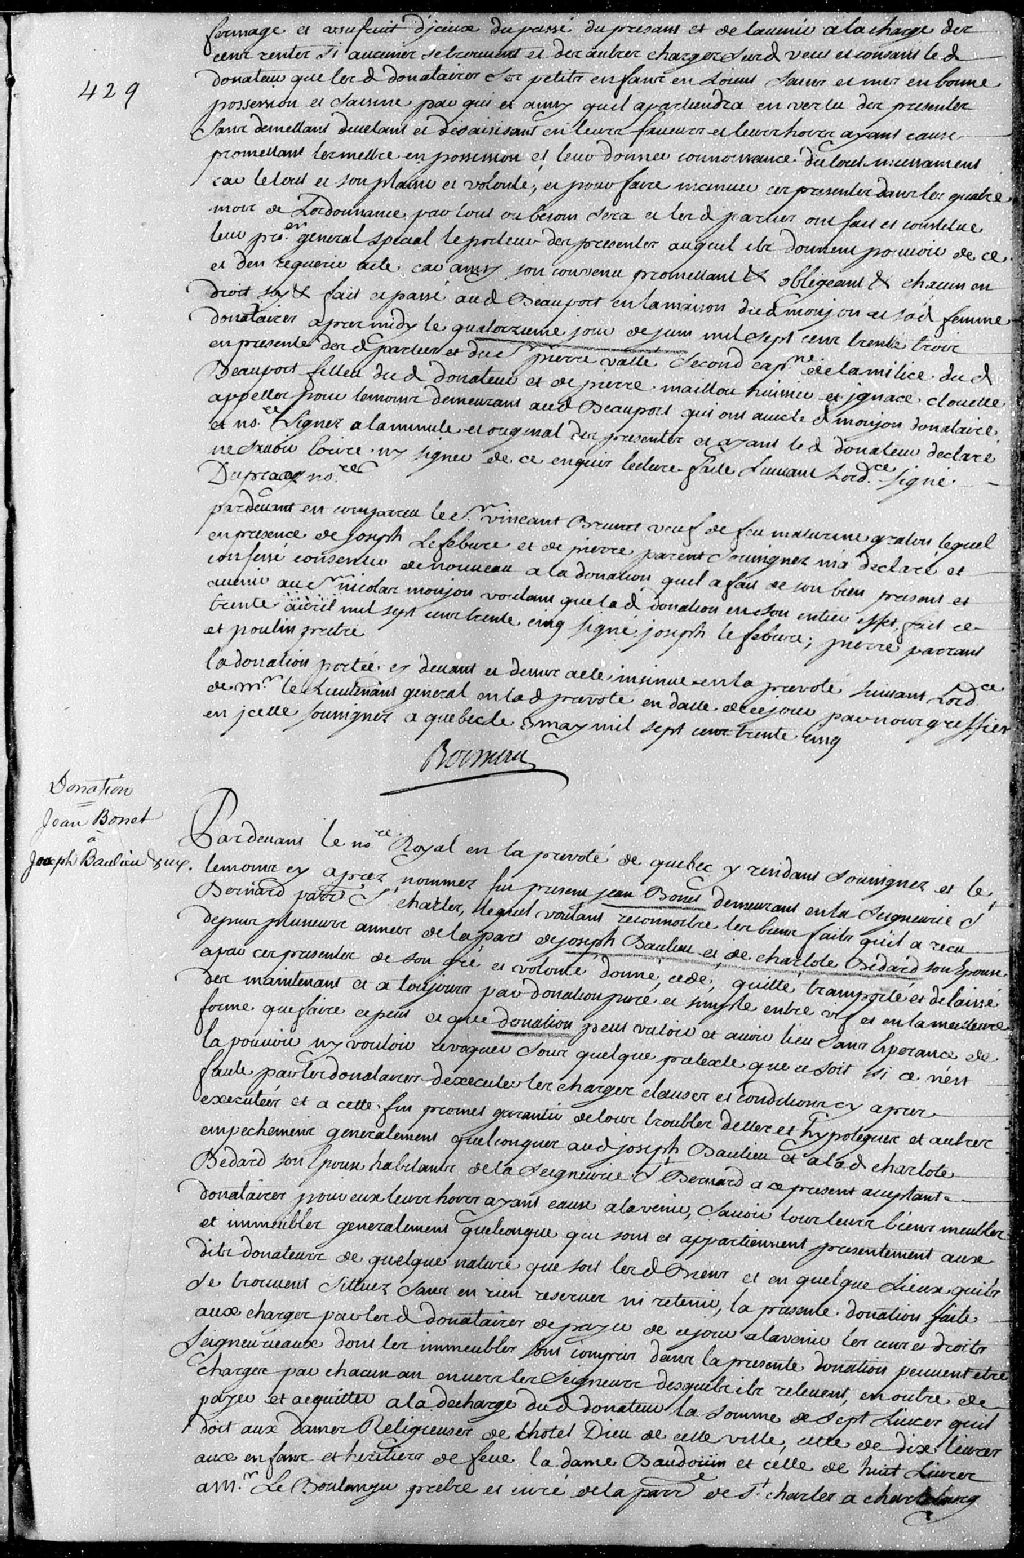 fermage et usufruit d'jceux du passé du presant et de lavenir a la charge des
cens rentes si aucunes se trouvent et des autres charges sur d veut et consant le d
donateur que les d donataires ses petits enfans en soient saisis et mis en bonne
429
possession et saisine par qui et ainsy quil apartiendra en vertu des presentes
sans demettant devetant et desaisisant en leurs faveurs et leurs hoirs ayant cause
promettant les mettre en possession et leur donner connoissance du tout
car le tout et son plaisir et volonté, et pour faire insinuer ces presentes dans les quatre
mois de l'ordonnance par tout ou besoin sera et les d parties ont fait et constitué
leur pro.er general special le porteur des presentes auquel ils donnent pouvoir de ce
et den requerir acte car ainsy son convenu promettant &c obligeant &c chacun en
droit soy &c fait et passé aud Beauport en la maison dud monjon et sa d femme
donataires apres midy le quatorzieme jour de juin mil sept cent trente trois
en presence des d parties et du Sr pierre vallé second cap.ne de la milice du d
Beauport filleu du d donateur et de pierre maillou huissier et ignace clouette
appellez pour temoins demeurans aud Beauport qui ont avec le d monjon donataire
et no.re signez a la minutte et original des presentes et ayant le d donateur declaré
ne savoir ecrire ny signer de ce enquis lecture faite suivant Lord.ce signé
Duprac no.re
pardevant en comparu le Sr. vincant Brunet veuf de feu maturine graton lequel
en presence de Joseph Lefebvre et de pierre parent soussignez m'a declaré et
confessé consentir de nouveau a la donation quil a fait de son bien present et
avenir au Sr nicolas monjon voulant que la d donation en son entier effet, fait ce
trente avril mil sept cent trente cinq signé joseph lefebvre; pierre parrant
et poulin prestre
la donation portée cy devant et dernier acte insinué en la prevoté suivant Lord.ce
de M.r le Lieutenant general en la d prevote en datte de ce jour par nous greffier
en jcelle soussignez a quebec le 5 may mil sept cent trente cinq
Boisseau
Donation
Jean Bonet
a
Joseph Baulieu & ux.
Pardevant le no.re Royal en la prevoté de quebec y residant soussignez et les
temoins cy apres nommez fut present jean Bonet demeurant en la Seigneurie St
Bernard parr. St charles, lequel voulant reconnoitre les bien faits quil a receu
depuis plusieurs années de la part de joseph Baulieu et de charlote Bédard son Epouse
apar ces presentes de son gré et volonté donné, cedé, quitté, transporté et delaissé
des maintenant et a toujours par donation pure et simple entre vifs et en la meilleure
forme que faire ce peut et que donation peut valoir et avoir lieu sans Esperance de
la pouvoir ny vouloir revoquer sous quelque pretexte que ce soit si ce n'est
faute par les donataires d'executer les charges clauses et conditions cy apres
executées et a cette fin promet garantir de tous troubles dettes et hypoteques et autres
empechemens generalement quelconques aud joseph Baulieu et a la d charlote
Bedard son Epouse habitans de la Seigneurie St Bernard a ce present acceptant
donataires pour eux leurs hoirs ayans cause a lavenir, Savoir tous leurs biens meubles
et immeubles generalement quelconque qui sont et appartiennent presentement aux
dits donateurs de quelque nature que soit les d Biens et en quelque Lieux quils
se trouvent sittuez sans en rien reserver ni retenir, la presente donation faite
aux charges par les d donataires de payer de ce jour a lavenir les cens et droits
Seigneuriaux dont les immeubles sont compris dans la presente donation peuvent etre
charges par chacun an envers les Seigneurs desquels ils relevent, en outre de
payer et acquitter a la decharge du d donateur la somme de sept Livres quil
doit aux Dames Religieuses de Lhotel Dieu de cette ville, celle de dix livres
aux enfans et heritiers de feue la dame Baudouin et celle de huit Livres
a M.r Le Boulanger prêtre et curé de la parr.e de St charles a charlesbourg